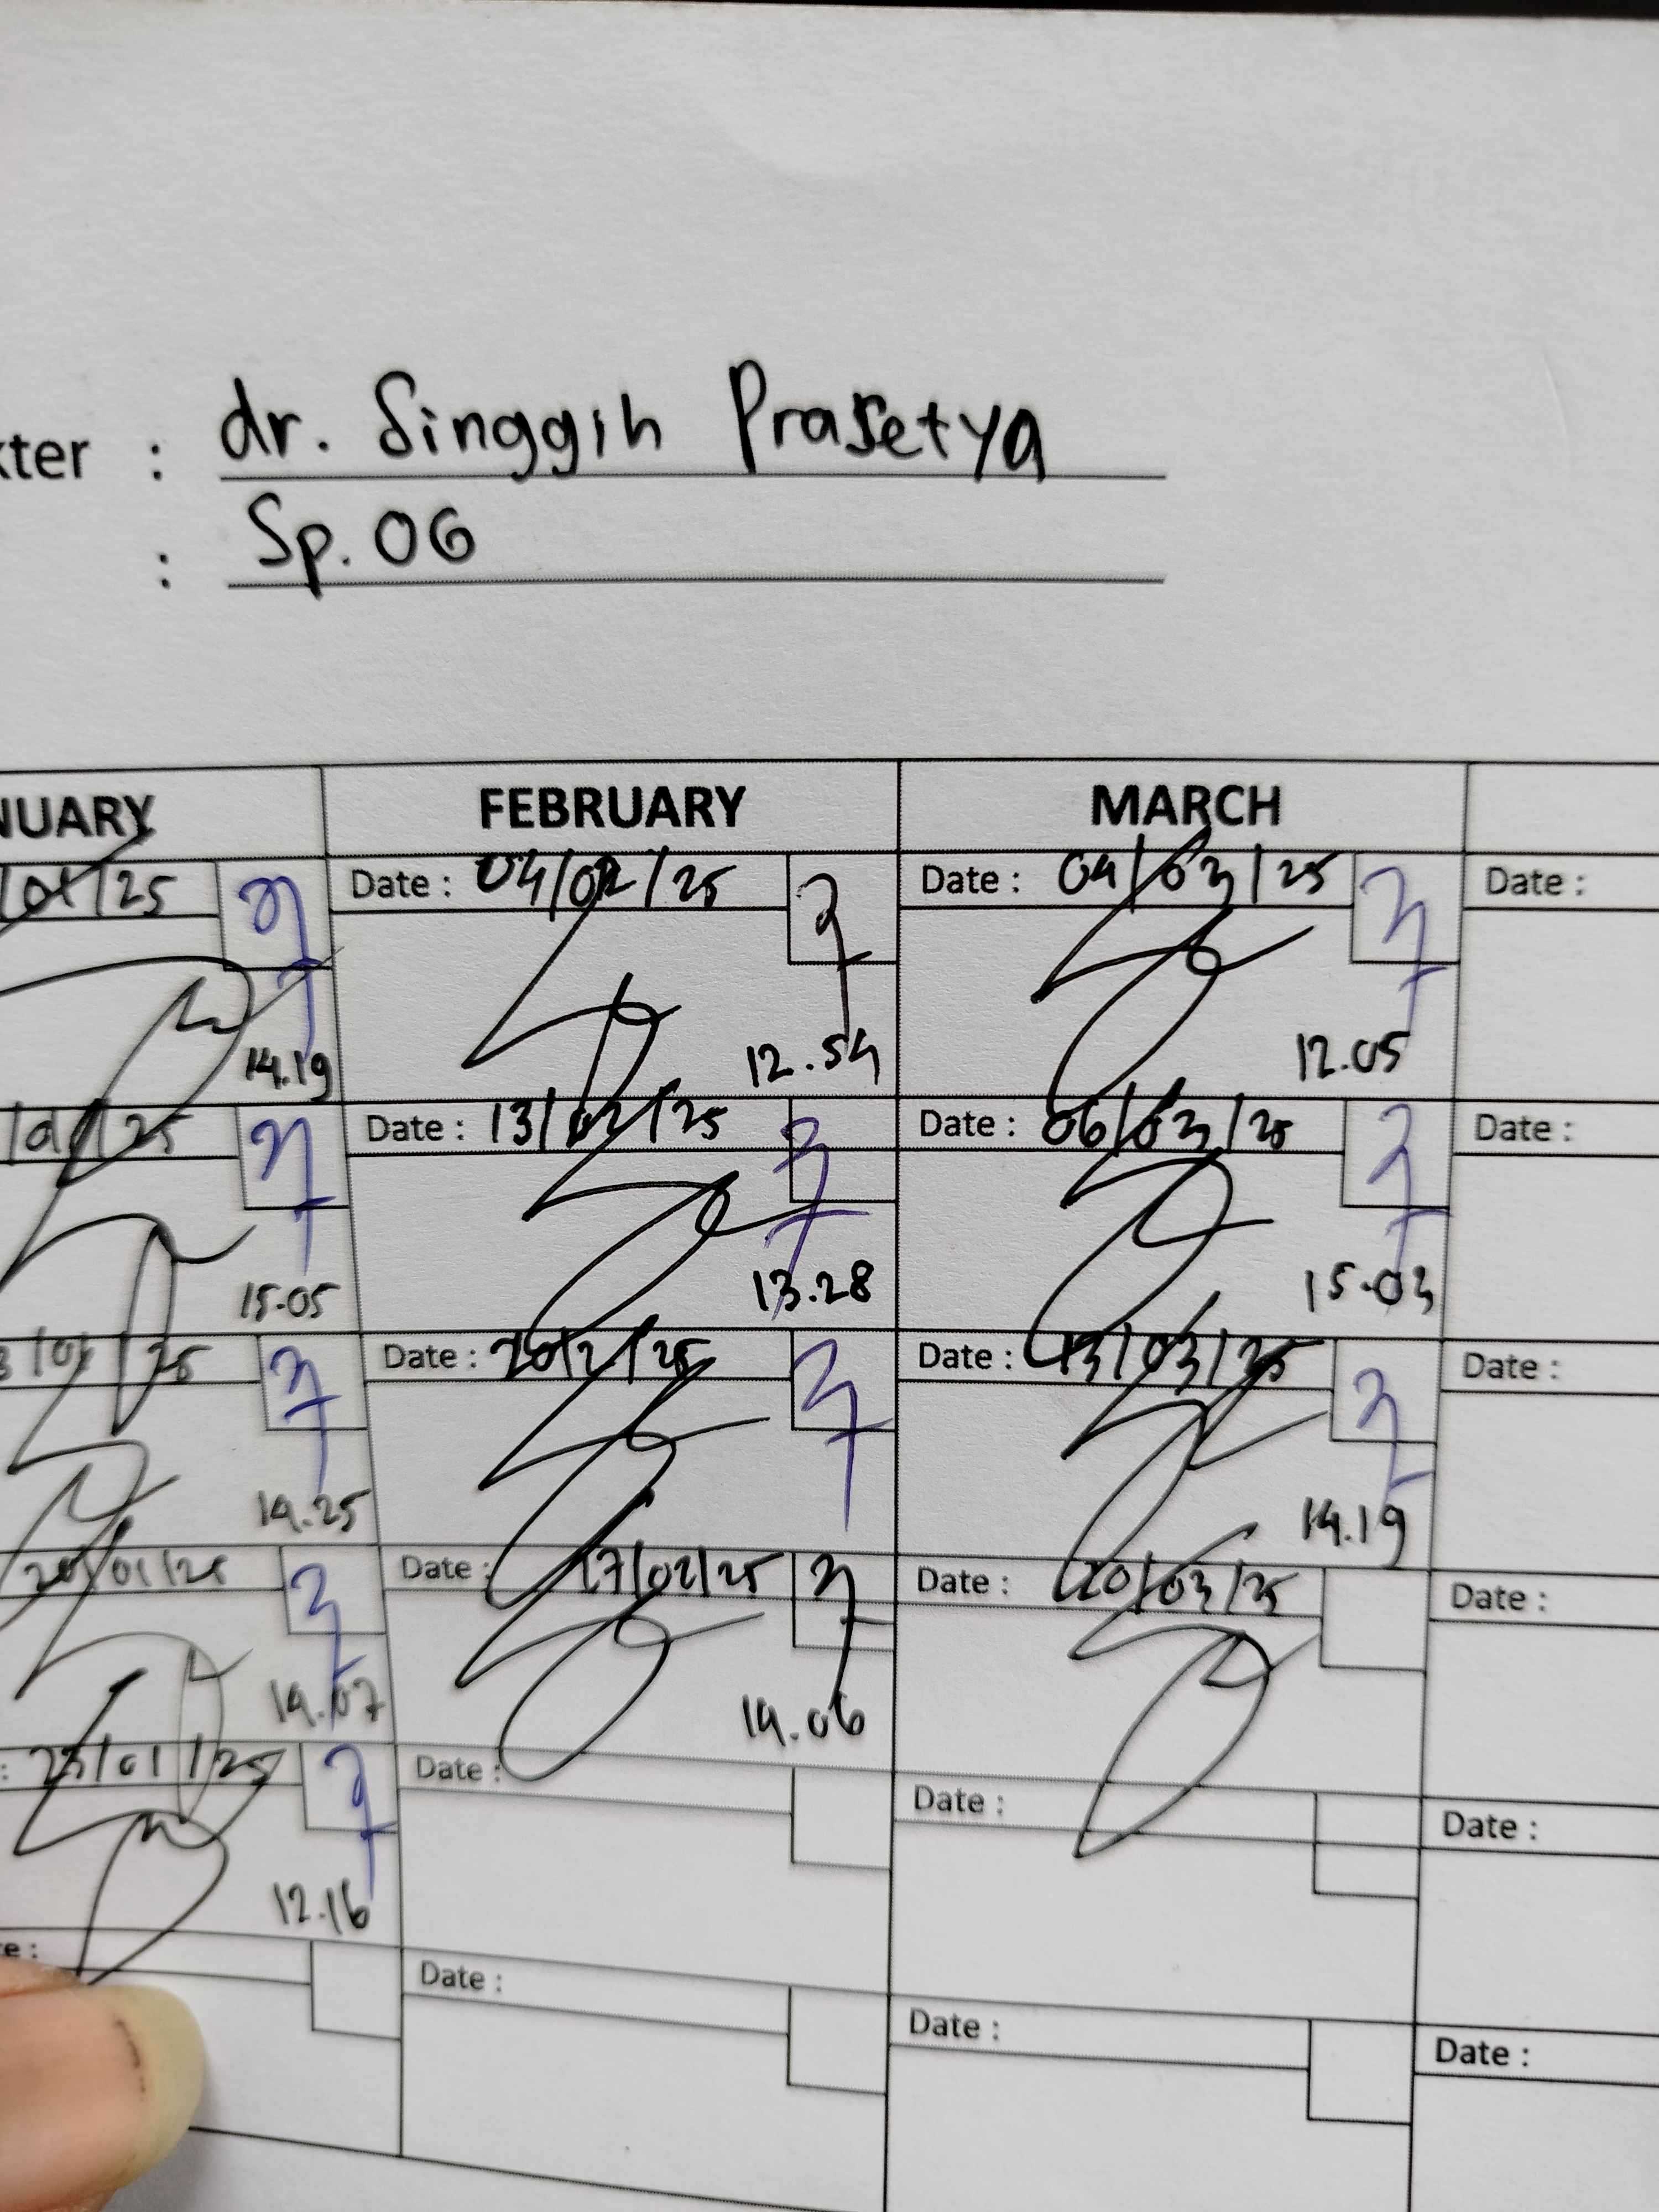 kter : dr. Singgih Prasetya
: Sp. OG
NUARY FEBRUARY MARCH
/01/25 Date : 04/02/25 Date : 04/03/25 Date :
14.19 12.54 12.05
/25 Date : 13/02/25 Date : 06/03/25 Date :
15.05 13.28 15.03
/25 Date : 20/2/25 Date : 13/03/25 Date :
14.25 14.19
/01/25 Date : 27/02/25 Date : 20/03/25 Date :
14.07 14.06
: /01/25 Date : Date : Date :
12.16
te : Date : Date : Date :